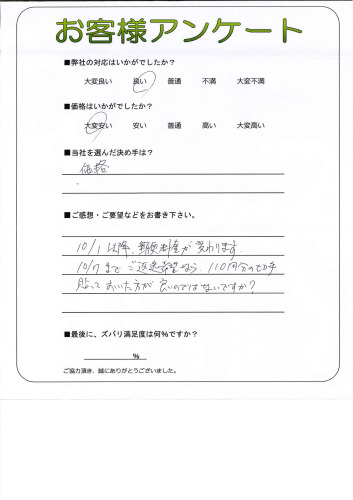 お客様アンケート
■弊社の対応はいかがでしたか?
大変良い 良い 普通 不満 大変不満
■価格はいかがでしたか?
大変安い 安い 普通 高い 大変高い
■当社を選んだ決め手は?
価格
■ご感想・ご要望などをお書き下さい。
10/1以降、郵便料金が変わります。
10/7までご返送希望なら、110円分の切手
貼っておいた方が良いのではないですか?
■最後に、ズバリ満足度は何%ですか?
%
ご協力頂き、誠にありがとうございました。